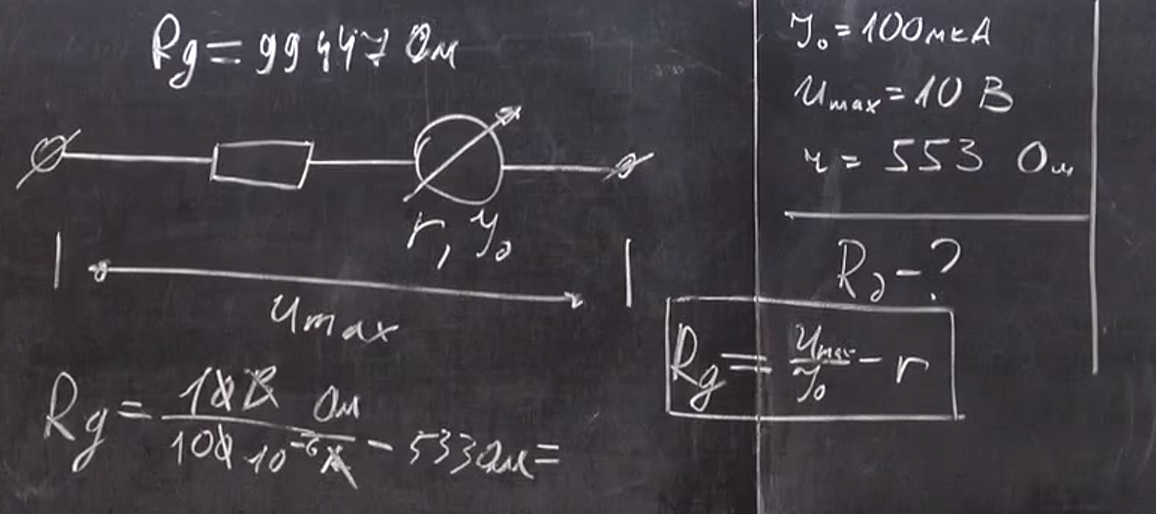 Rg = 99447 Ом
r, I₀
Umax
Rg = 10В Ом / 100 10⁻⁶ А - 533 Ом =
I₀ = 100 мкА
Umax = 10 В
r = 553 Ом
R∂ - ?
Rg = Umax / I₀ - r